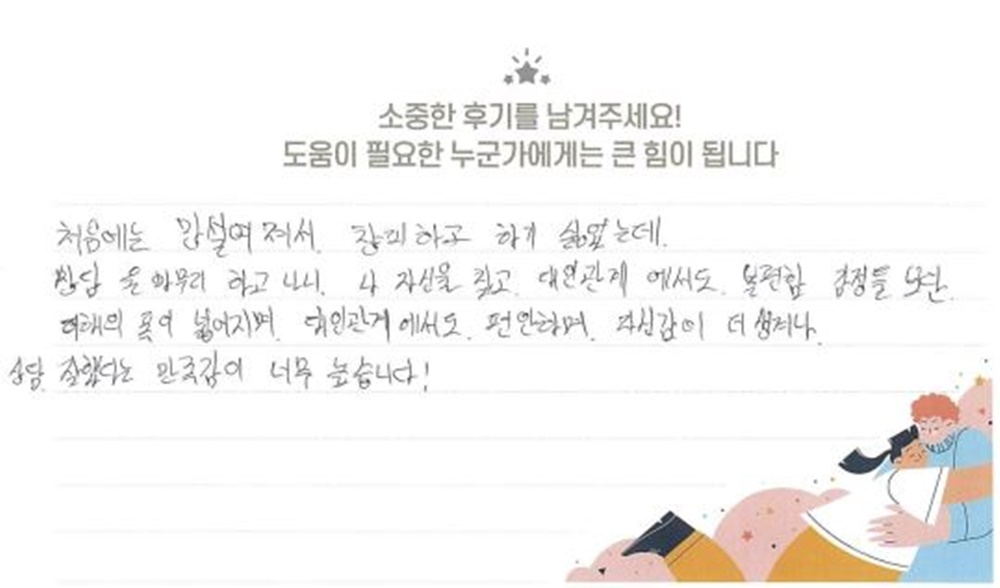 소중한 후기를 남겨주세요!
도움이 필요한 누군가에게는 큰 힘이 됩니다
처음에는 망설여져서. 창피하고 하기 싫었는데.
상담을 마무리 하고 나니. 나 자신을 찾고. 대인관계에서도. 불편함 감정들 보단.
이해의 폭이 넓어지며. 대인관계에서도. 편안하며. 자신감이 더 생겨나.
상담. 잘했다는 만족감이 너무 높습니다!